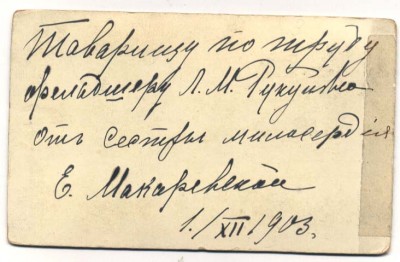 Товарищу по труду
фельдшеру Л. М.
отъ сестры милосердія
Е. Макаревской
1./XII 1903.